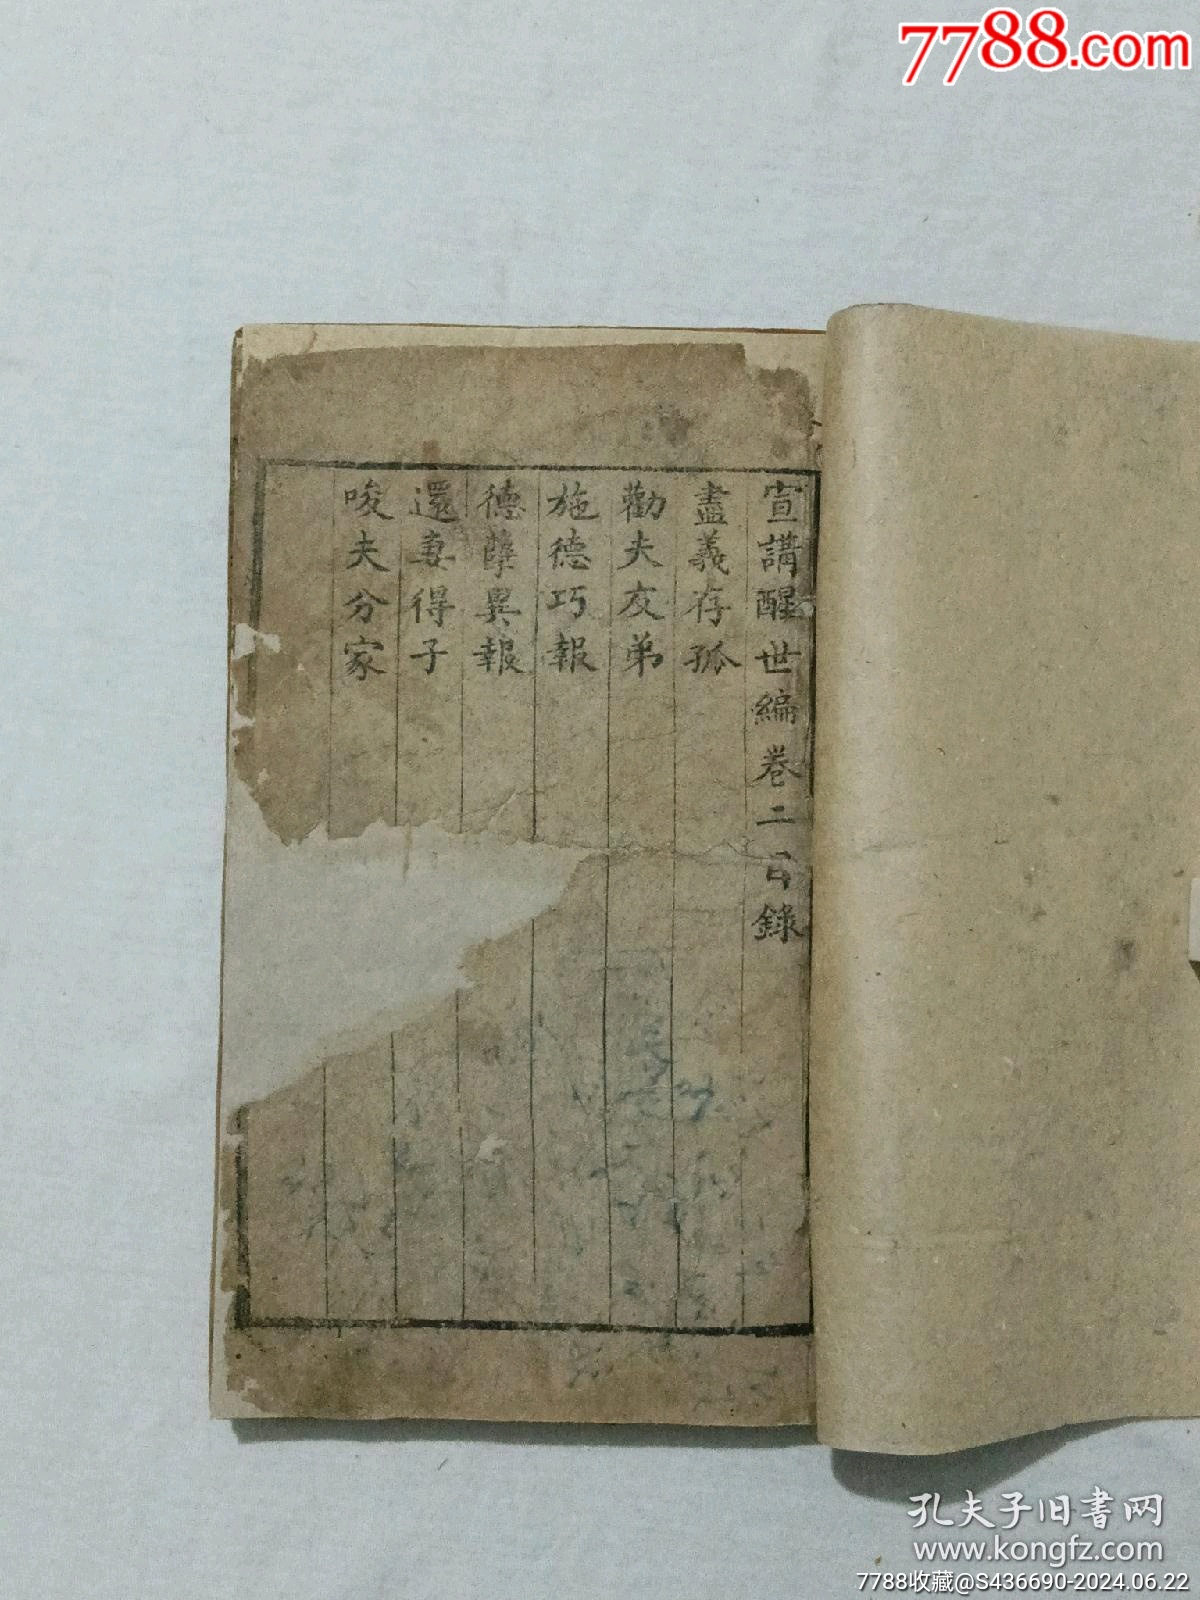 7788.com
宣講醒世編卷二目錄
盡義存孤
勸夫友弟
施德巧報
德孽異報
還妻得子
唆夫分家
孔夫子旧书网
www.kongfz.com
7788收藏@S436690-2024.06.22